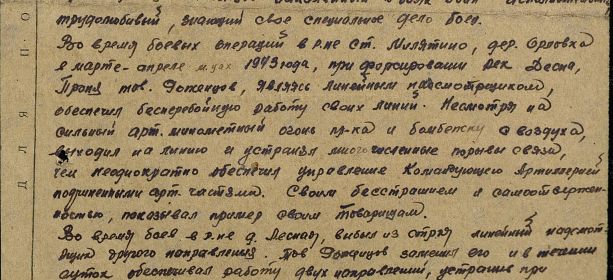 трудолюбивый, знающий свое специальное дело боец.
Во время боевых операций в р-не Ст. Милятино, дер. Орловка
в марте-апреле м-цах 1943 года, при форсировании рек Десна,
Проня тов. являясь линейным надсмотрщиком,
обеспечил бесперебойную работу своих линий. Несмотря на
сильный арт. минометный огонь пр-ка и бомбежку с воздуха,
выходил на линию и устранял многочисленные порывы связи,
чем неоднократно обеспечил управление Командующего Артиллерией
подчиненными арт. частями. Своим бесстрашием и самоотвержен-
ностью, показывал пример своим товарищам.
Во время боев в р-не д. Лесная, выбыл из строя линейный надсмот-
рщик другого направления. Тов заменил его и в течении
суток обеспечивал работу двух направлений, устранив при
ДЛЯ ПО